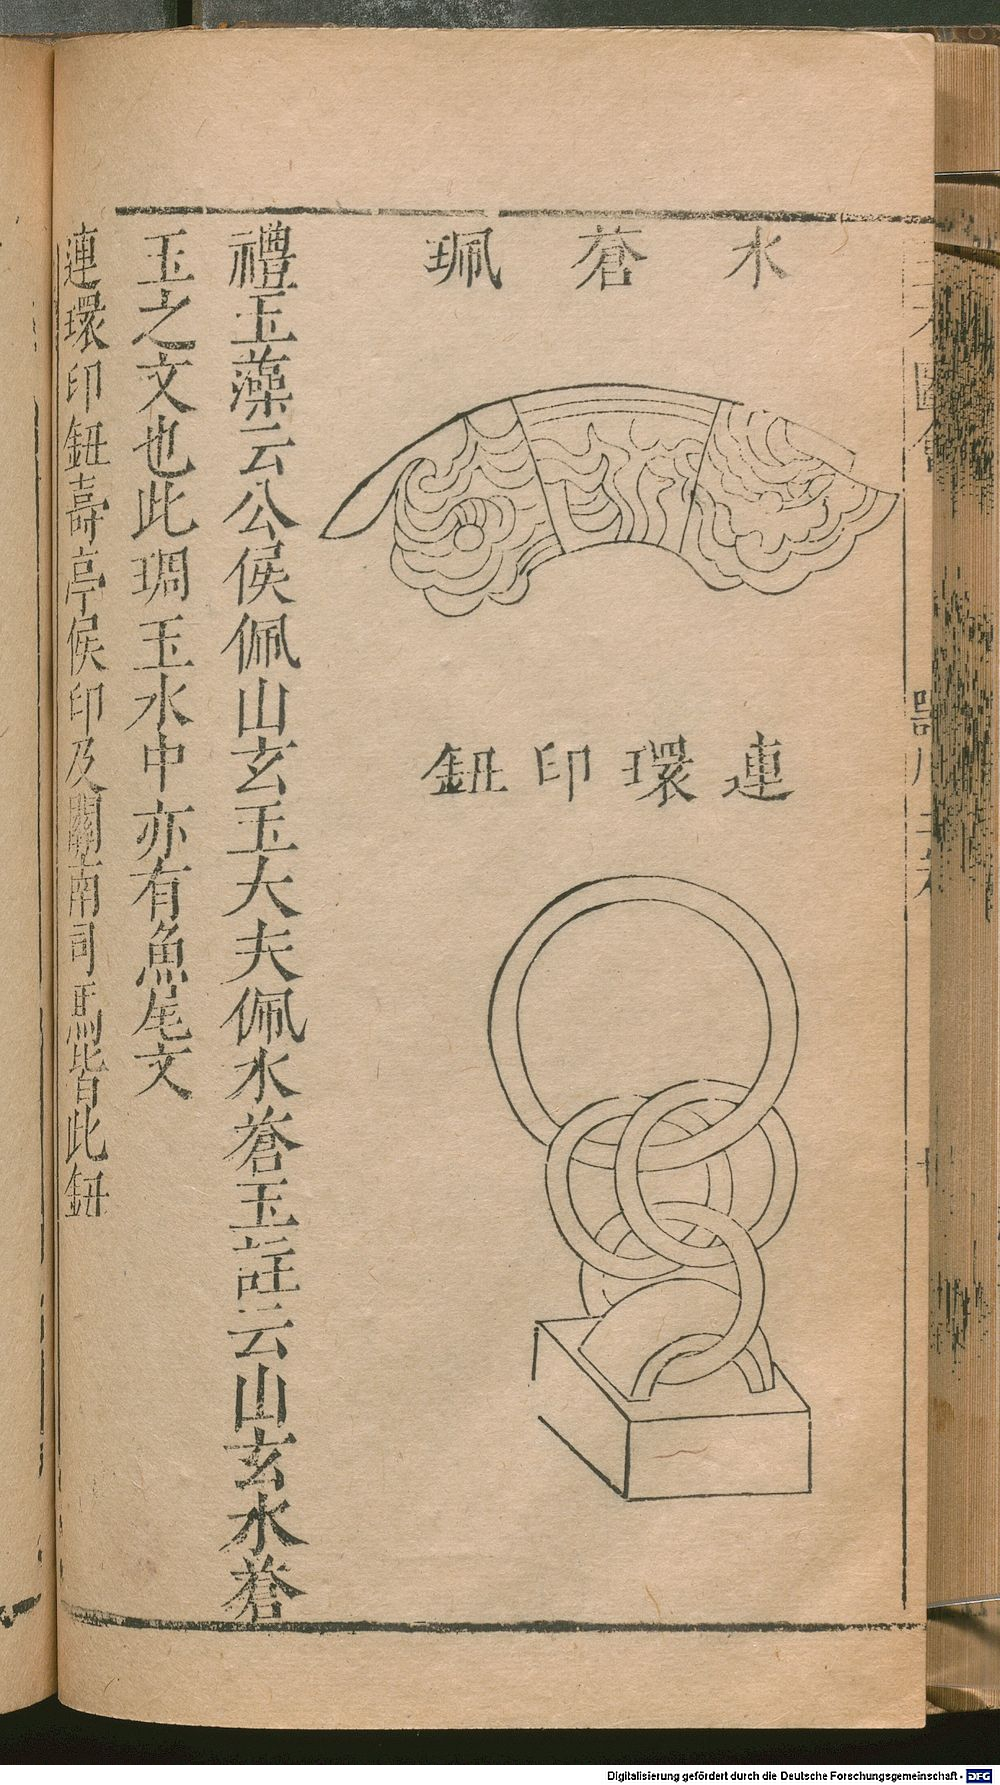 水蒼珮
連環印鈕
禮玉藻云公侯佩山玄玉大夫佩水蒼玉註云山玄水蒼
玉之文也此琱玉水中亦有魚尾文
連環印鈕壽亭侯印及關南司馬皆此鈕
Digitalisierung gefördert durch die Deutsche Forschungsgemeinschaft - DFG